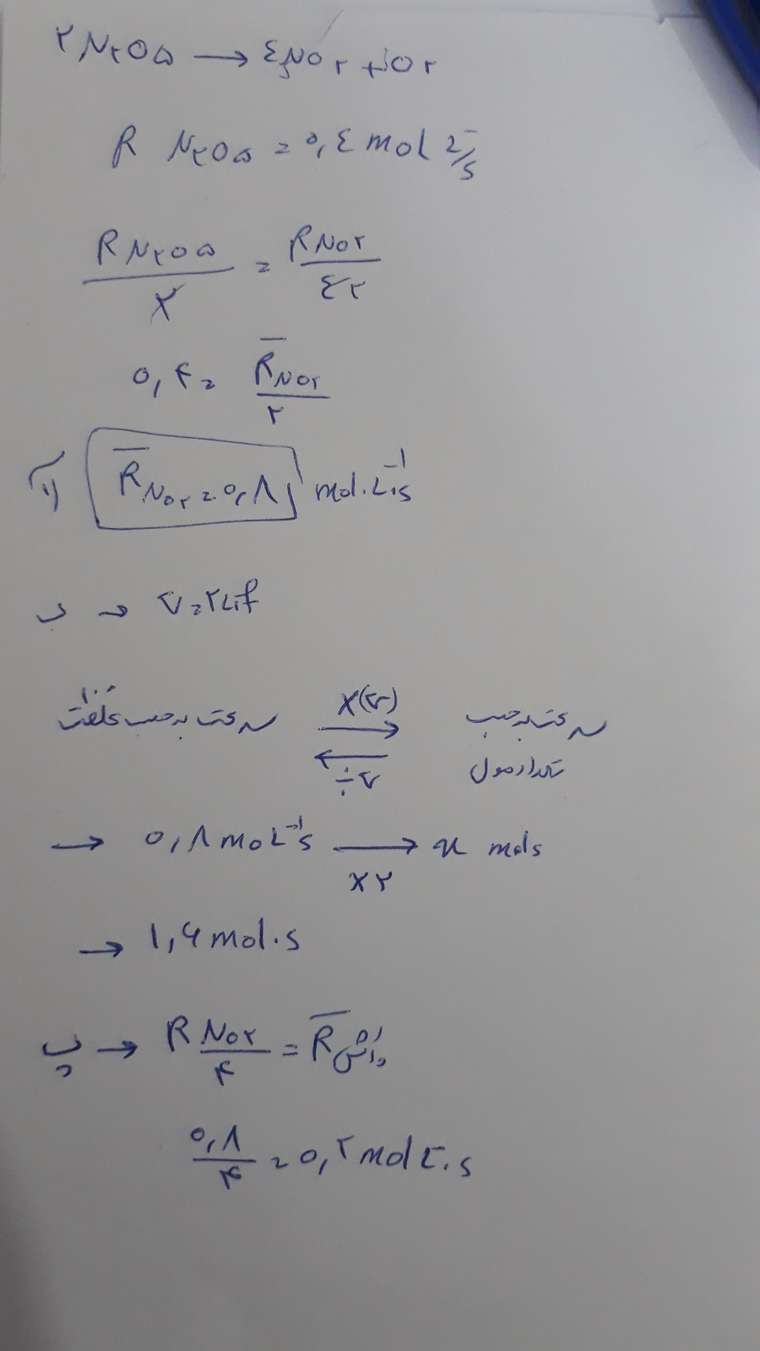 ۲N۲O۵ → ٤NO۲ + O۲
R N۲O۵ = ۰,٤ mol L⁻/s
RN۲O۵/۲ = RNO۲/٤۲
۰,۴ = R̄NO۲/۲
R̄NO۲ = ۰,۸ mol.L⁻¹.s
ب → V=۲Lit
سرعت برحسب غلظت ×(V) → ← ÷V سرعت برحسب
تعداد مول
→ ۰,۸ molL⁻¹s → ×۲ x mols
→ ۱,۶ mol.s
پ → RNO۲/۴ = R̄ واکنش
۰,۸/۴ = ۰,۲ mol L⁻.s